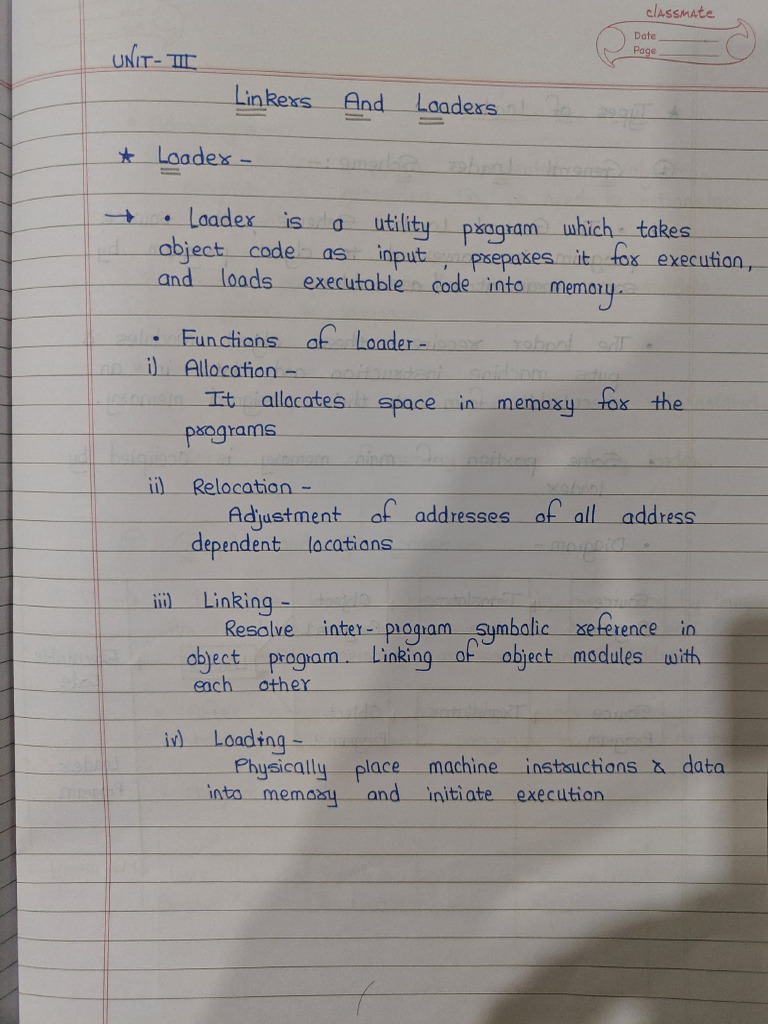 classmate
Date
Page
UNIT- III
Linkers And Loaders
★ Loader -
→ • Loader is a utility program which takes
object code as input, prepares it for execution,
and loads executable code into memory.
• Functions of Loader -
i) Allocation -
It allocates space in memory for the
programs
ii) Relocation -
Adjustment of addresses of all address
dependent locations
iii) Linking -
Resolve inter-program symbolic reference in
object program. Linking of object modules with
each other
iv) Loading -
Physically place machine instructions & data
into memory and initiate execution